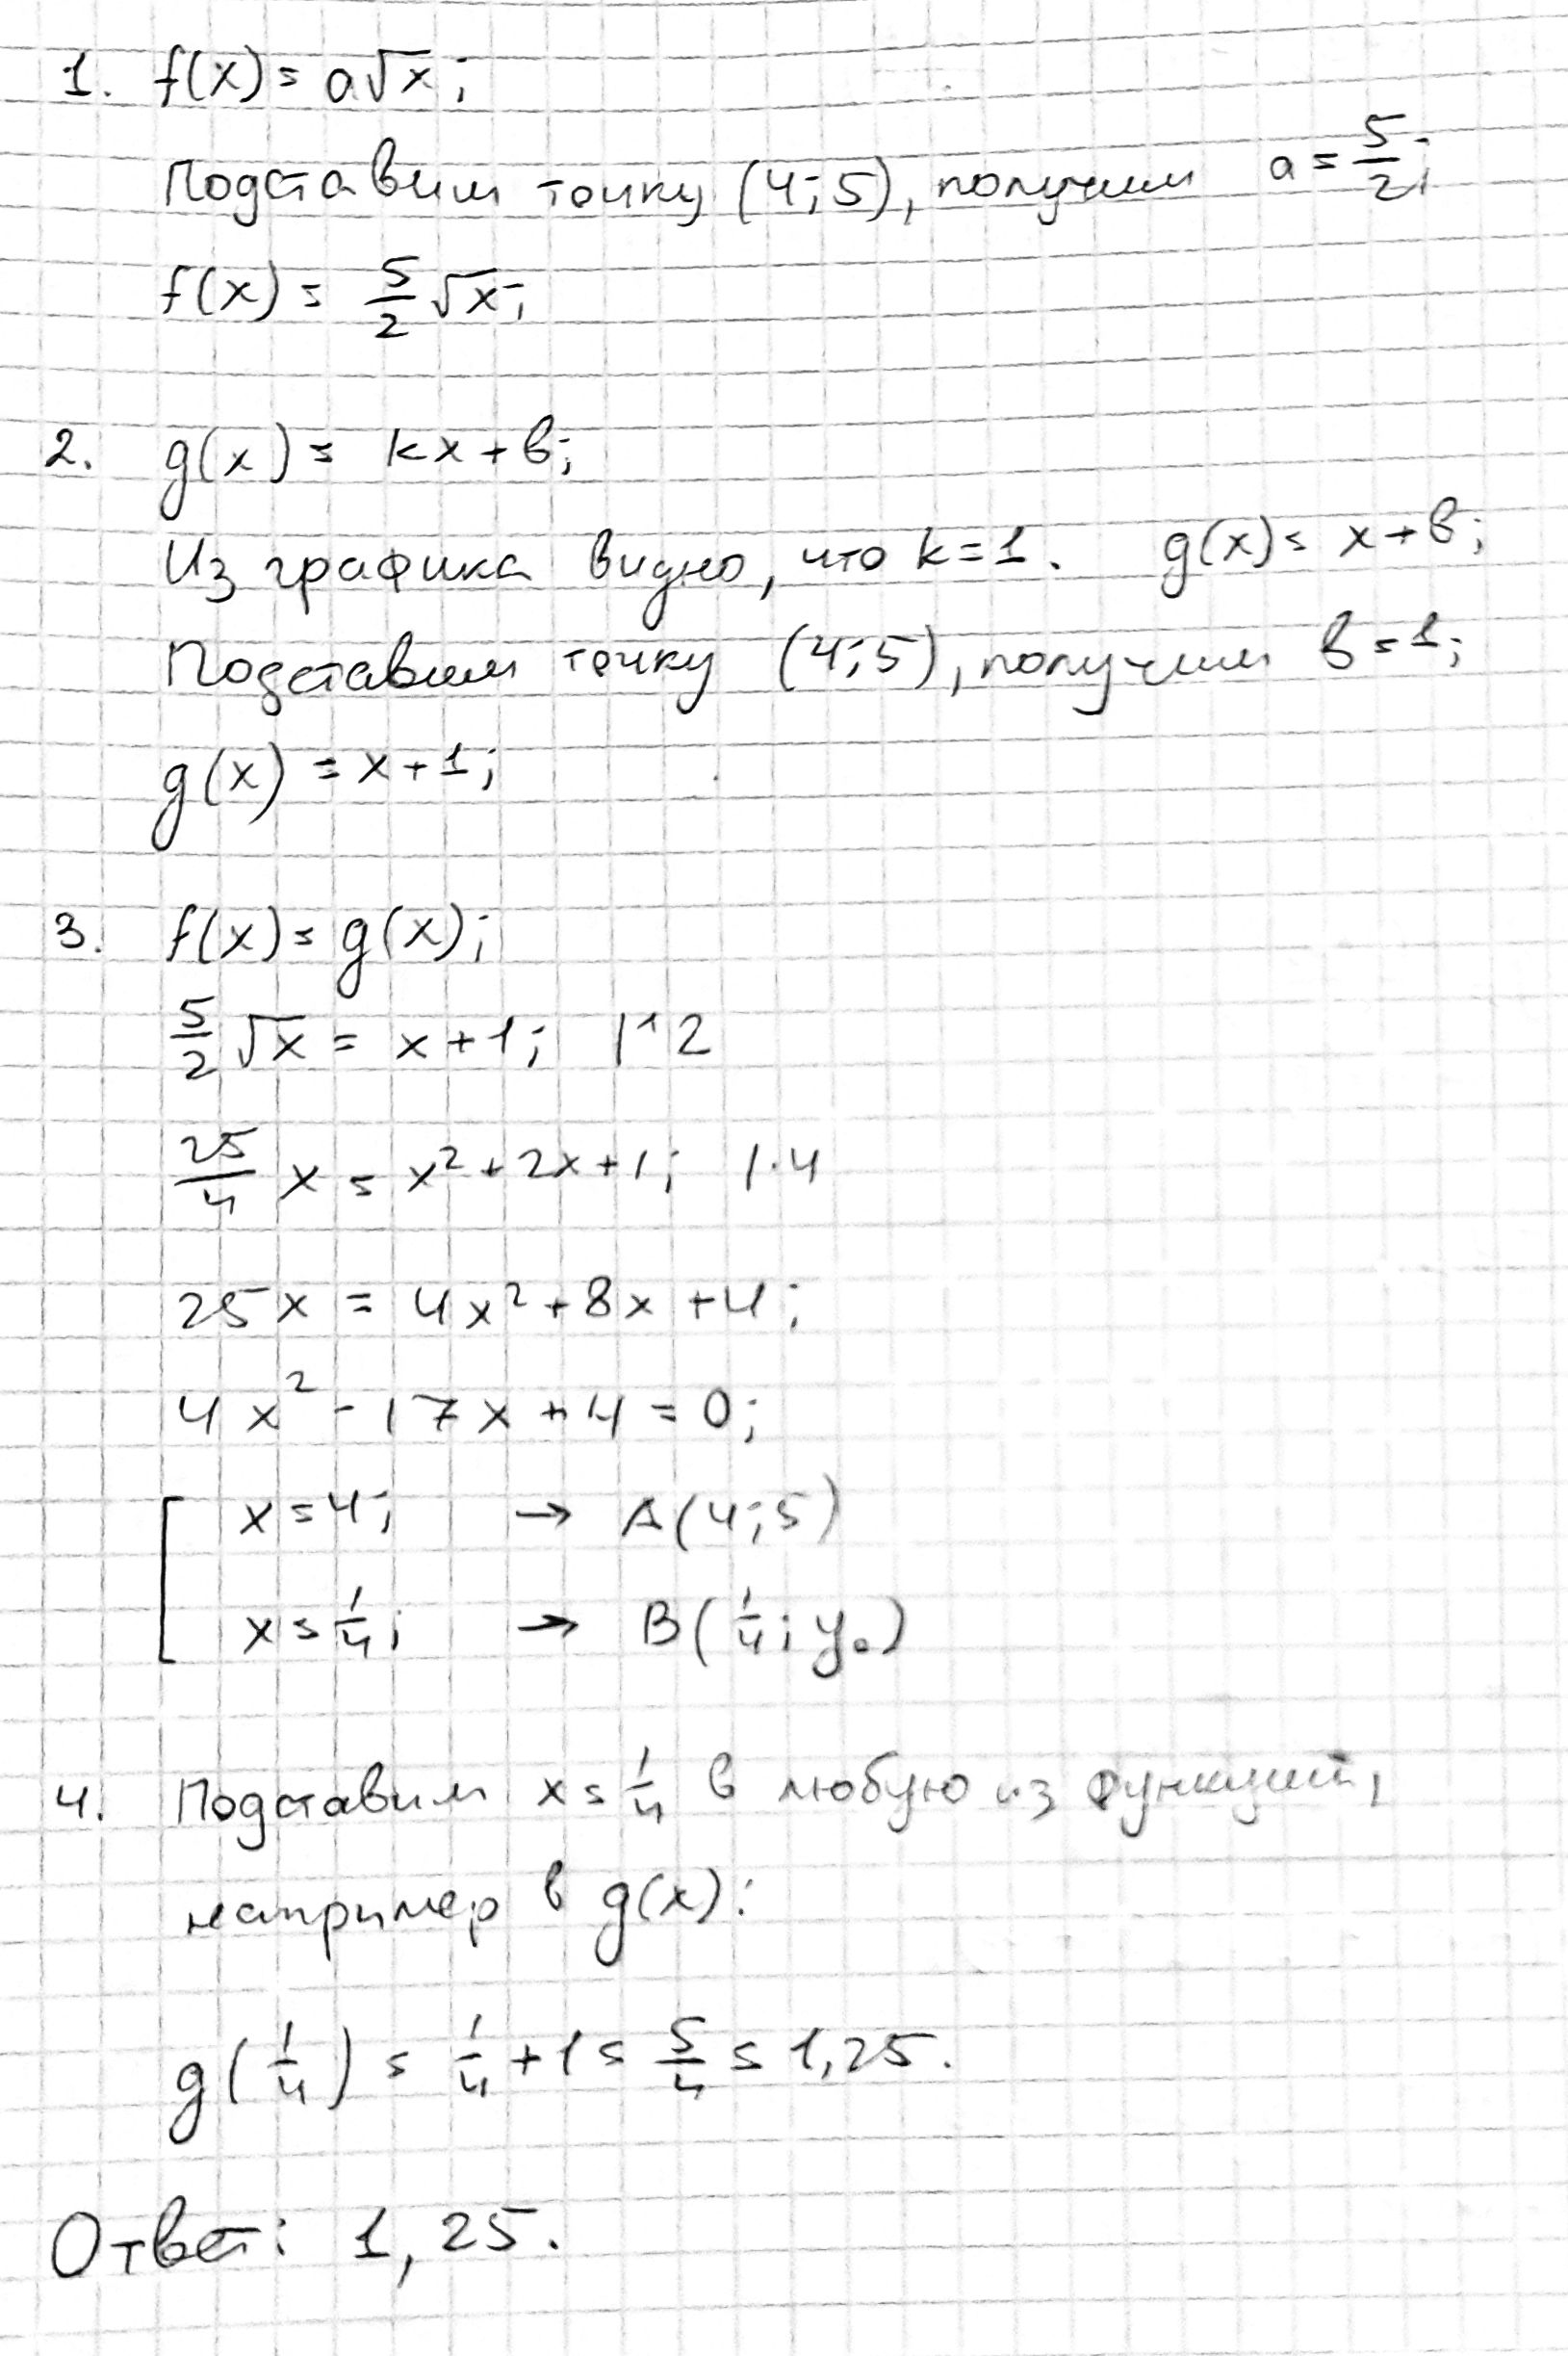 1. f(x) = a√x;
Подставим точку (4;5), получим a = 5/2;
f(x) = 5/2 √x;
2. g(x) = kx + b;
Из графика видно, что k=1. g(x) = x + b;
Подставим точку (4;5), получим b = 1;
g(x) = x + 1;
3. f(x) = g(x);
5/2 √x = x + 1; |^2
25/4 x = x² + 2x + 1; |·4
25x = 4x² + 8x + 4;
4x² - 17x + 4 = 0;
[ x = 4; → A(4;5)
x = 1/4; → B(1/4; y₀)
4. Подставим x = 1/4 в любую из функций,
например в g(x):
g(1/4) = 1/4 + 1 = 5/4 = 1,25.
Ответ: 1,25.